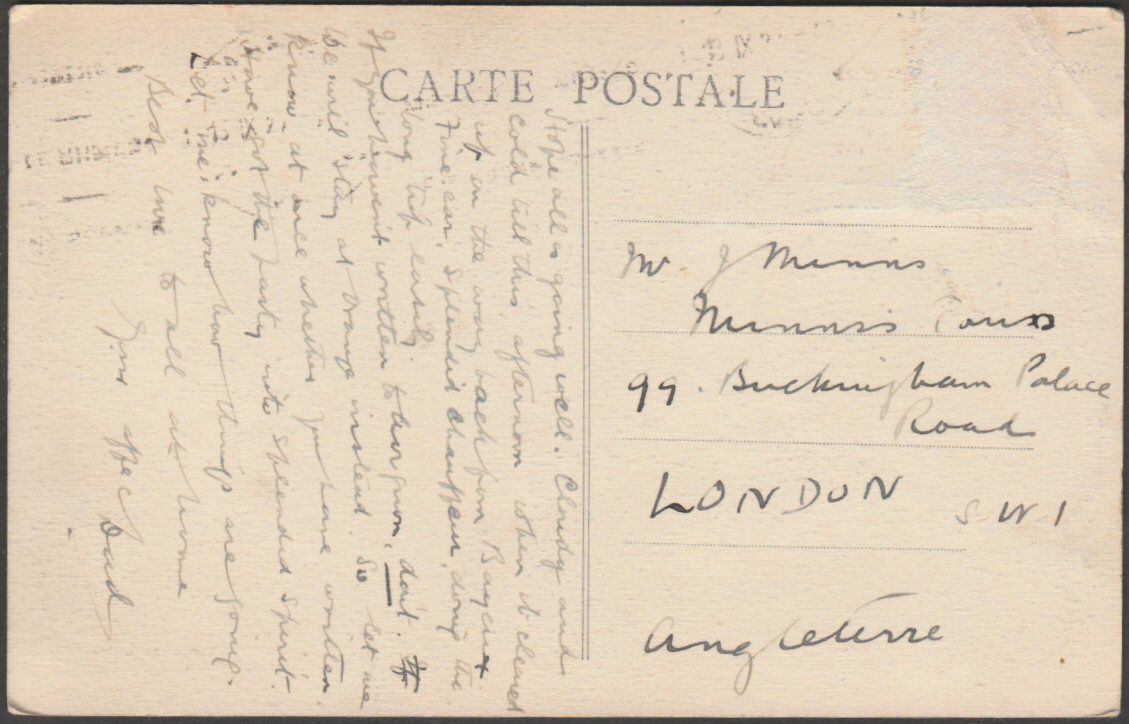 CARTE POSTALE
Hope all is going well. Cloudy and
cold till this afternoon when it cleared
up on the way back from Bayeux
Fine car, splendid chauffeur, doing the
long trip easily.
If you haven't written to, don't. If
we will stay at instead. So let me
know at once whether you have written.
Have got the party into splendid spirit.
Let me know how things are going.
Best love to all at home
Your affec
Dad
Mr. J Minns
Minns's
99. Buckingham Palace
Road
LONDON SW1
Angleterre